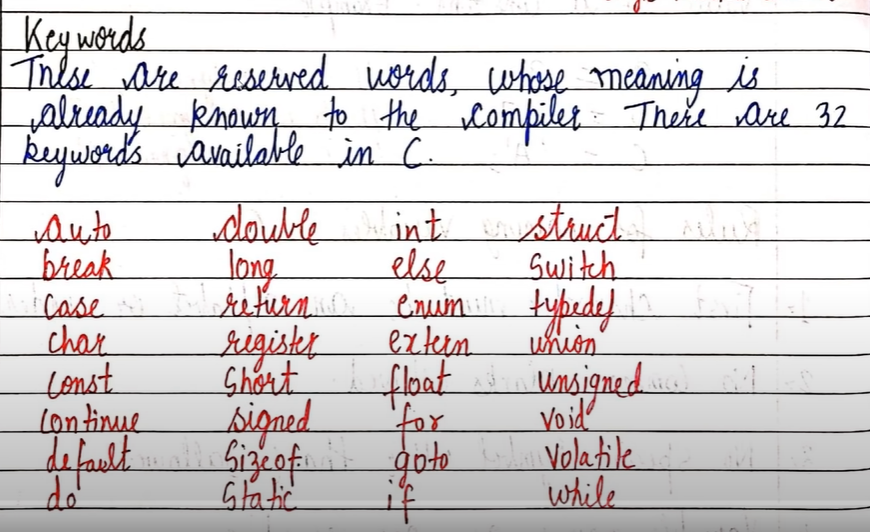 Keywords
These are reserved words, whose meaning is
already known to the compiler. There are 32
keywords available in C.
auto double int struct
break long else Switch
case return enum typedef
char register extern union
const Short float unsigned
continue signed for void
default Sizeof goto Volatile
do Static if while